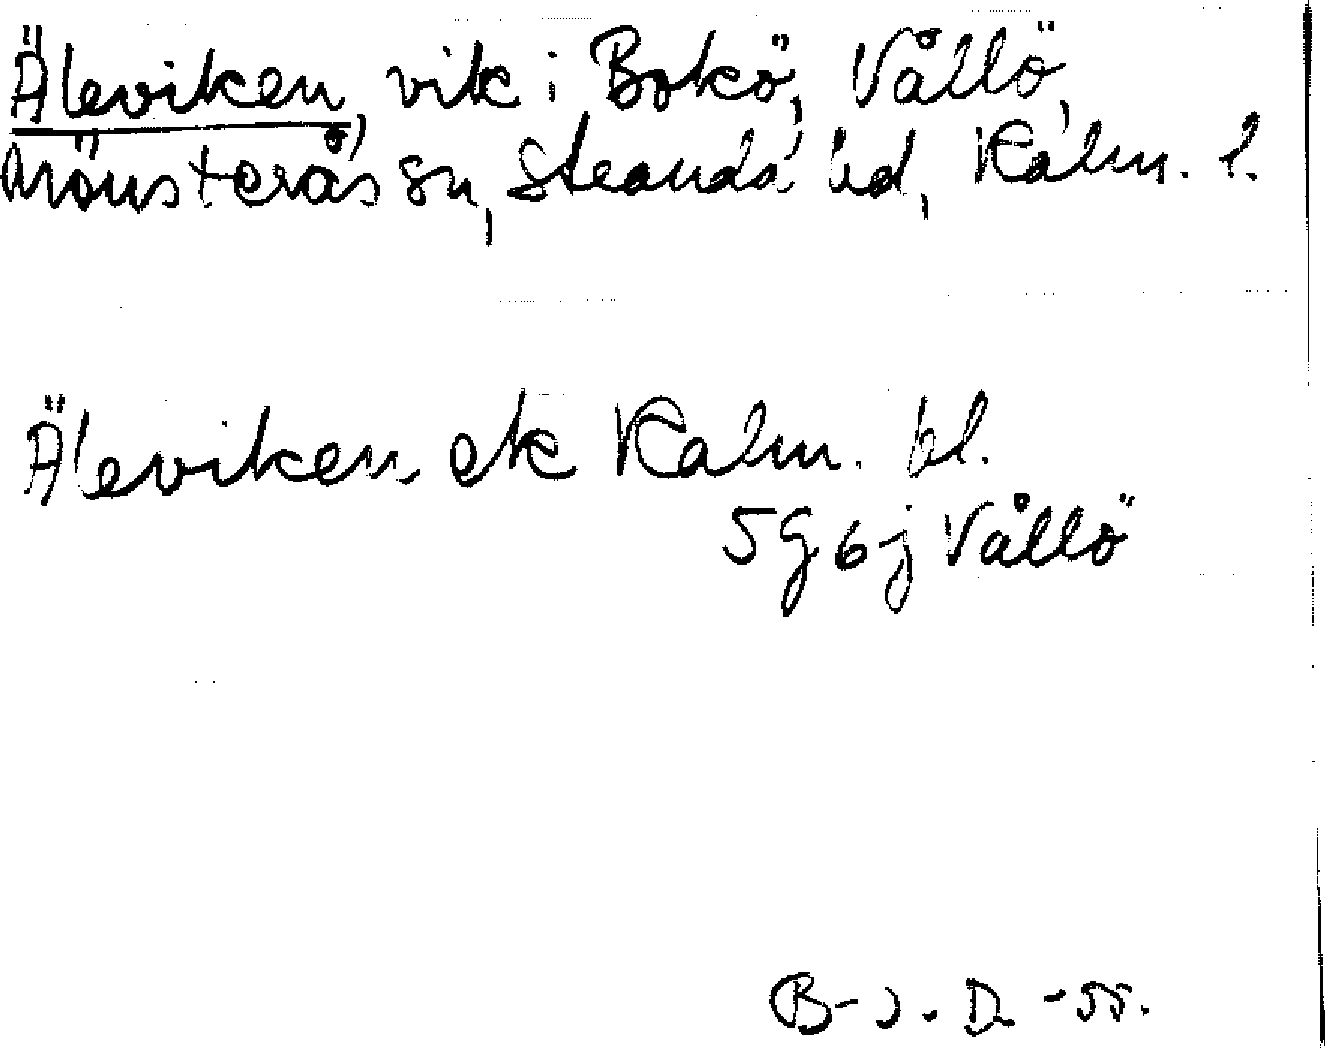 Äleviken, vik i Bokö, Vållö,
Mönsterås sn, Stranda hd, Kalm. l.
Äleviken ek Kalm. bl.
5G6j Vållö
B-J. D. -55.